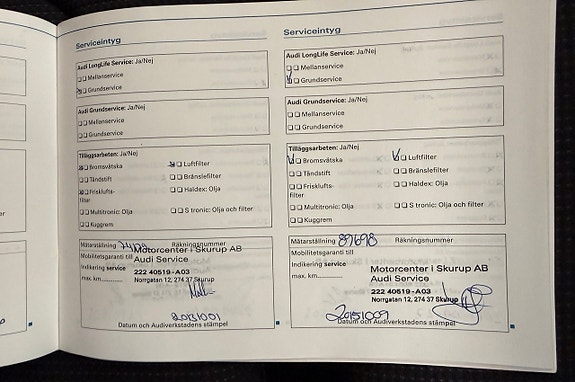 Serviceintyg
Audi LongLife Service: Ja/Nej
Mellanservice
Grundservice
Audi Grundservice: Ja/Nej
Mellanservice
Grundservice
Tilläggsarbeten: Ja/Nej
Bromsvätska
Luftfilter
Tändstift
Bränslefilter
Frisklufts-
filter
Haldex: Olja
Multitronic: Olja
S tronic: Olja och filter
Kuggrem
Mätarställning
Räkningsnummer
Mobilitetsgaranti till
Indikering service
max. km
Motorcenter i Skurup AB
Audi Service
222 40519 - A03
Norrgatan 12, 274 37 Skurup
20131001
Datum och Audiverkstadens stämpel
Serviceintyg
Audi LongLife Service: Ja/Nej
Mellanservice
Grundservice
Audi Grundservice: Ja/Nej
Mellanservice
Grundservice
Tilläggsarbeten: Ja/Nej
Bromsvätska
Luftfilter
Tändstift
Bränslefilter
Frisklufts-
filter
Haldex: Olja
Multitronic: Olja
S tronic: Olja och filter
Kuggrem
Mätarställning 89698 Räkningsnummer
Mobilitetsgaranti till
Indikering service
max. km
Motorcenter i Skurup AB
Audi Service
222 40519 - A03
Norrgatan 12, 274 37 Skurup
20151009
Datum och Audiverkstadens stämpel